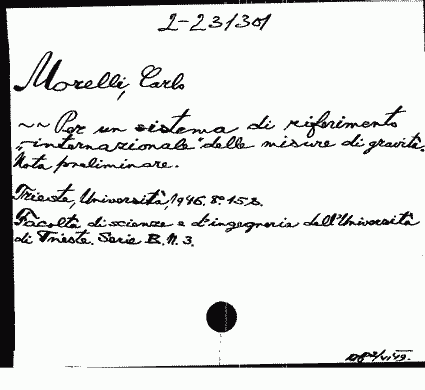 2-23130
Morelli, Carlo
~~ Per un sistema di riferimento
„internazionale" delle misure di gravità.
Nota preliminare.
Trieste, Università, 1946. 8° 15 p.
Facoltà di scienze e d'ingegneria dell'Università
di Trieste. Serie B. N. 3.